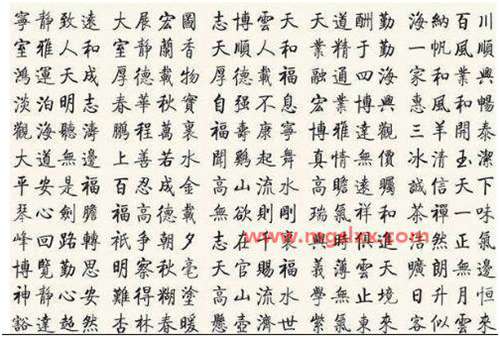 寧靜致遠 大展宏圖 志博雲天 天道酬勤 海納百川
室雅人和 室靜蘭香 順人和 業精于勤 一帆風順
鴻運天成 厚德載物 厚德載福 融通四海 家和業興
淡泊明志 春華秋實 自强不息 宏業博興 惠風和暢
觀海聽濤 鵬程萬裏 福壽康寧 博雅達觀 三羊開泰
大道無邊 上善若水 聞鷄起舞 真情無價 冰清玉潔
平安是福 百忍成金 高山流水 高瞻遠矚 誠信天下
琴心劍膽 福高德載 無欲則剛 瑞氣祥和 茶禪一味
峰回路轉 祇爭朝夕 志在千裏 時俱進 正氣
博覽勤思 明察秋毫 天官賜福 義薄雲天 曠朗無
神靜心安 難得糊塗 高山流水 學無止境 日升月恒
豁達超然 杏林春暖 懸壺濟世 紫氣東來 客似雲